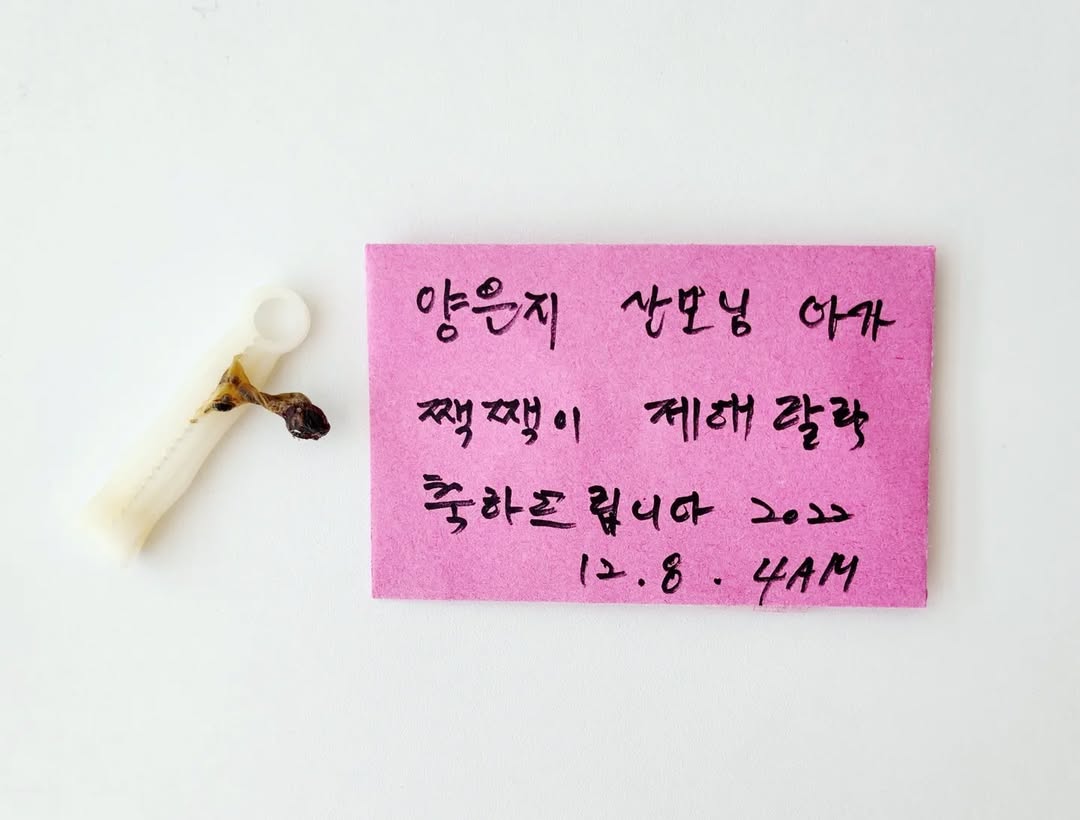 양은지 산모님 아가
짹짹이 제해 탈락
축하드립니다 2022
12.8. 4AM